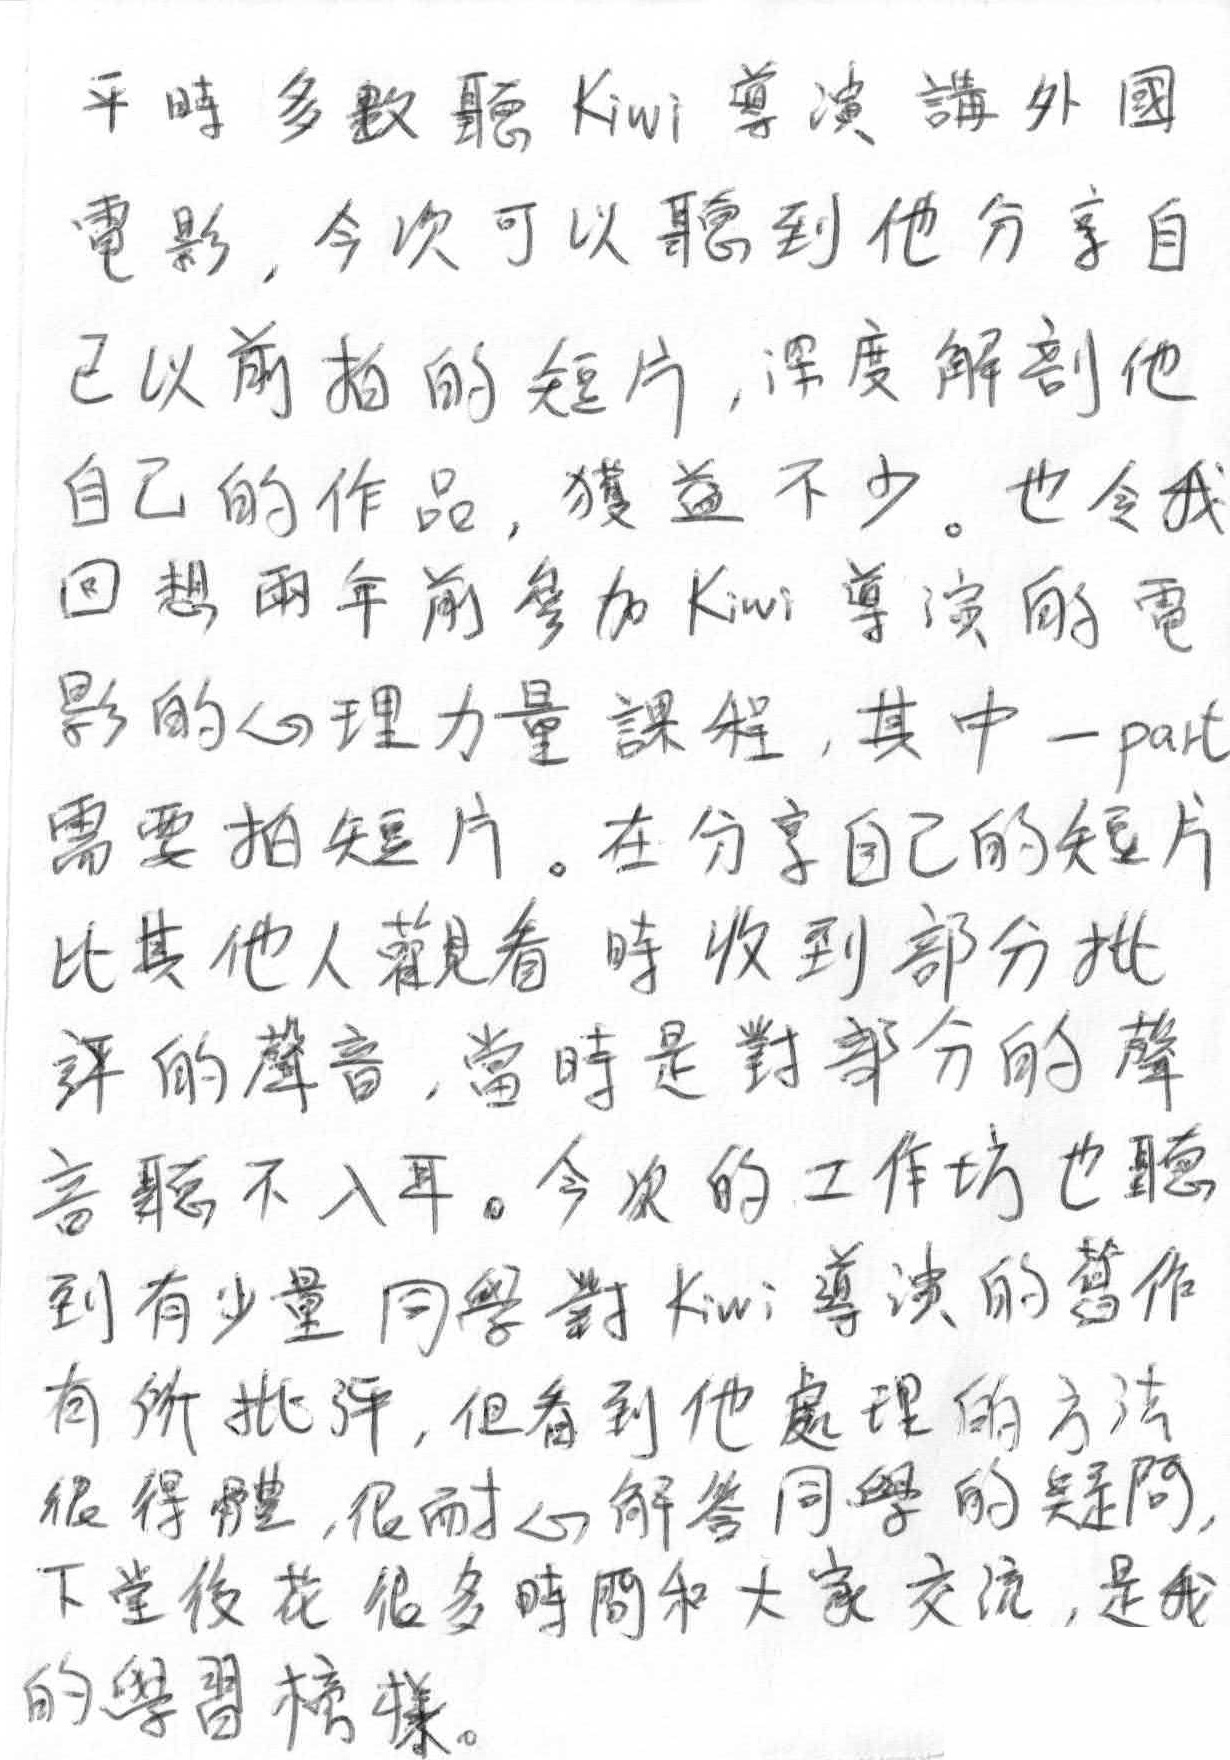 平時多數聽Kiwi導演講外國
電影,今次可以聽到他分享自
己以前拍的短片,深度解剖他
自己的作品,獲益不少。也令我
回想兩年前參加Kiwi導演的電
影的心理力量課程,其中一part
需要拍短片。在分享自己的短片
比其他人觀看時收到部分批
評的聲音,當時是對部分的聲
音聽不入耳。今次的工作坊也聽
到有少量同學對Kiwi導演的舊作
有所批評,但看到他處理的方法
很得體,很耐心解答同學的疑問,
下堂後花很多時間和大家交流,是我
的學習榜樣。